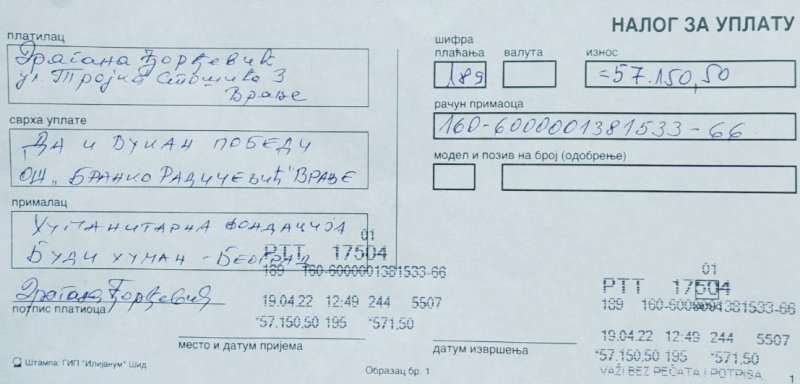 НАЛОГ ЗА УПЛАТУ
платилац
Драгана Ђорђевић
ул. Трајка Стошића 3
Врање
сврха уплате
ДА И ВУКАН ПОБЕДИ
ОШ „БРАНКО РАДИЧЕВИЋ" ВРАЊЕ
прималац
ХУМАНИТАРНА ФОНДАЦИЈА
БУДИ ХУМАН - БЕОГРАД
Драгана Ђорђевић
потпис платиоца
шифра плаћања
189
валута
износ
=57.150,50
рачун примаоца
160-6000001381533-66
модел и позив на број (одобрење)
01
PTT 17504
189 160-6000001381533-66
19.04.22 12:49 244 5507
*57.150,50 195 *571,50
место и датум пријема
01
PTT 17504
189 160-6000001381533-66
19.04.22 12:49 244 5507
*57.150,50 195 *571,50
VAŽI BEZ PEČATA I POTPISA
датум извршења
Штампа: ГИП "Илијанум" Шид
Образац бр. 1
1